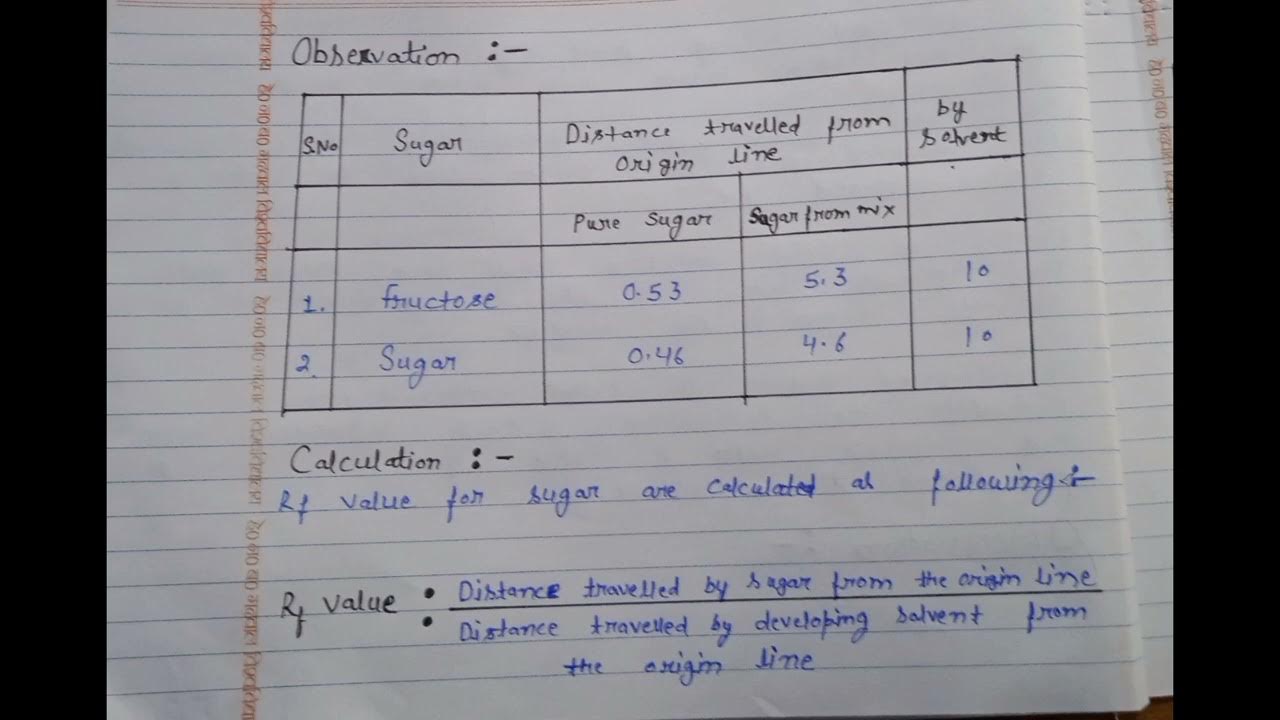 Observation :-
S.No Sugar Distance travelled from origin line by solvent
Pure Sugar Sugar from mix
1. fructose 0.53 5.3 10
2. Sugar 0.46 4.6 10
Calculation :-
Rf value for sugar are calculated as following :-
Rf value : Distance travelled by sugar from the origin line
Distance travelled by developing solvent from
the origin line